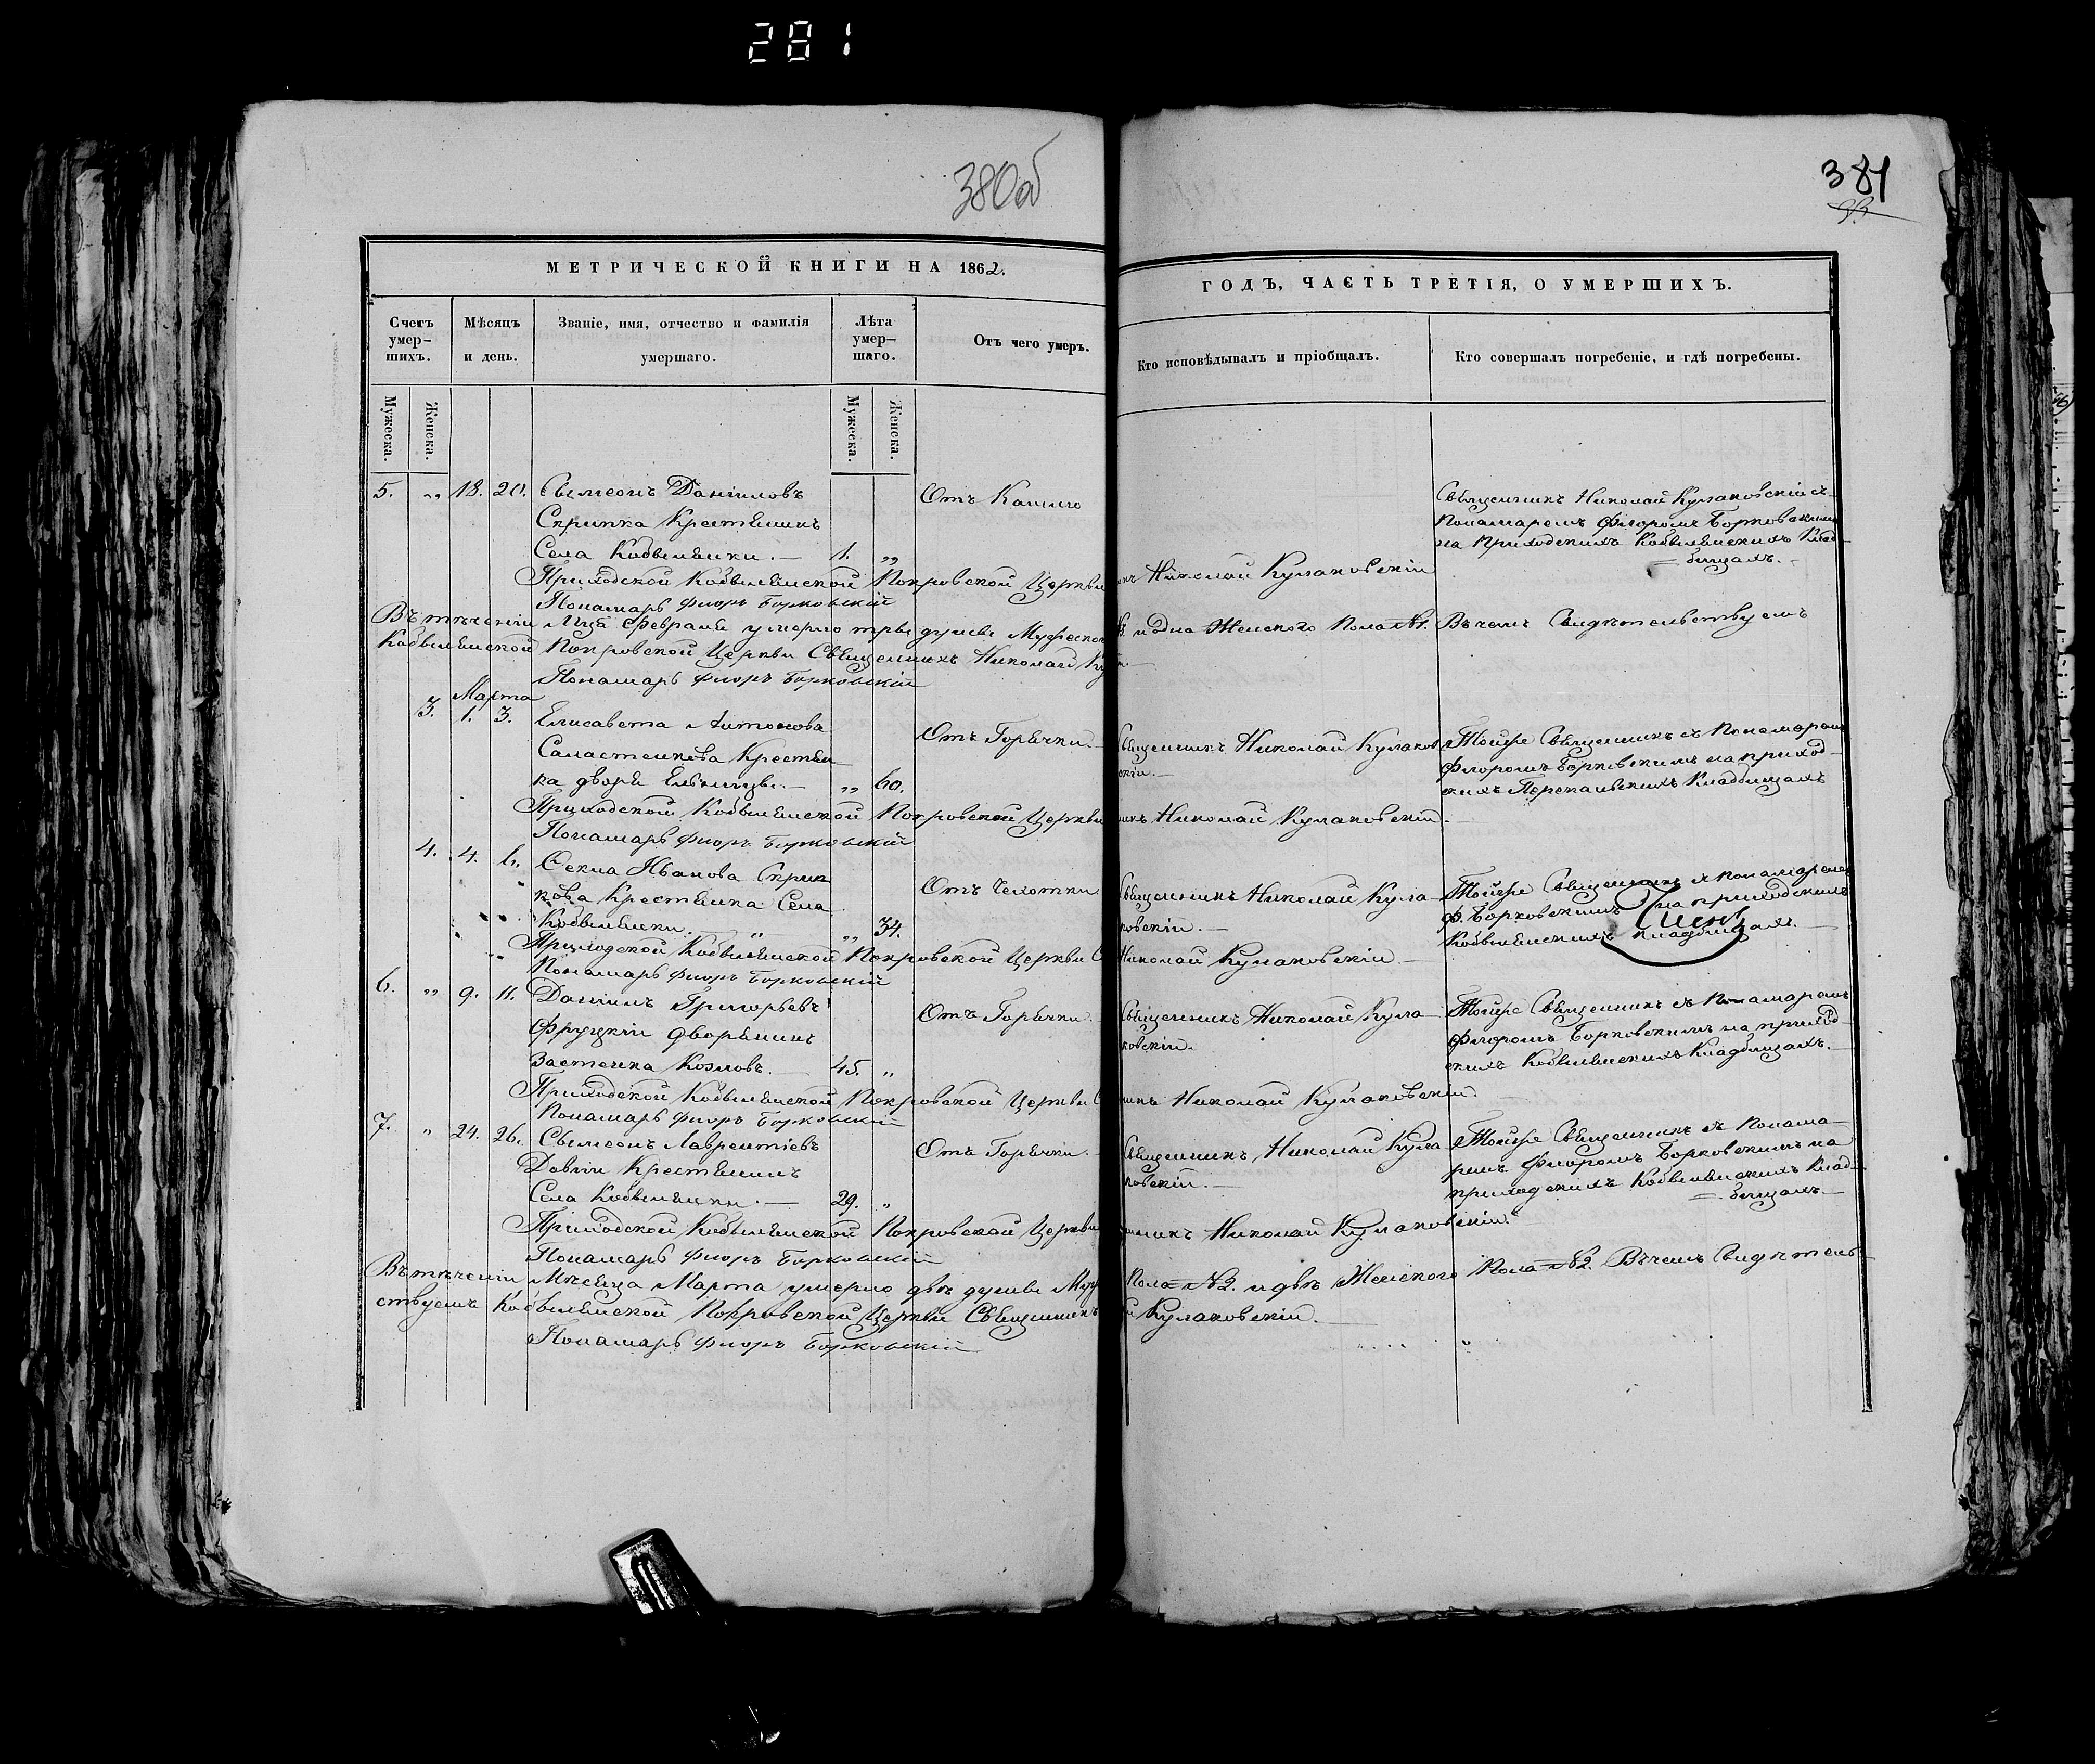 281
380об
381
МЕТРИЧЕСКОЙ КНИГИ НА 1862.
ГОДЪ, ЧАСТЬ ТРЕТІЯ, О УМЕРШИХЪ.
Счетъ умер-шихъ.
Мѣсяцъ и день.
Званіе, имя, отчество и фамилія умершаго.
Лѣта умер-шаго.
Отъ чего умеръ.
Кто исповѣдывалъ и пріобщалъ.
Кто совершалъ погребеніе, и гдѣ погребены.
Мужеска.
Женска.
Мужеска.
Женска.
5. „ 18. 20. Сѵмеонъ Даніиловъ
Скрипка Крестянинъ
Села Кобыльники. — 1. „
Отъ Кашлю
Священникъ Николай Кулаковскій съ
Пономаремъ Флоромъ Борковскимъ
на приходскихъ Кобыльникскихъ Клад-
бищахъ.
Приходской Кобыльникской Покровской Церкви
Николай Кулаковскій
Пономарь Флоръ Борковскій
Въ теченіи М-ца Февраля умерло три души Мужеского
и одна Женского Пола №1. Въ чемъ Свидѣтельствуемъ
Кобыльникской Покровской Церкви Священникъ Николай
Пономарь Флоръ Борковскій
Марта
3. 1. 3. Елисавета Антонова
Крестян-
ка двора — „ 60.
Отъ Горячки.
Священникъ Николай Кулаков-
скій. —
Тойже Священникъ съ Пономаремъ
Флоромъ Борковскимъ на приход-
скихъ Кладбищахъ
Приходской Кобыльникской Покровской Церкви
Николай Кулаковскій.
Пономарь Флоръ Борковскій
4. 4. 6. Фекла Иванова Скрип-
кова Крестянка Села
Кобыльники. „ 34.
Отъ Чахотки
Священникъ Николай Кула-
ковскій. —
Тойже Священникъ съ пономаремъ
Ф. Борковскимъ на приходскихъ
Кобыльникскихъ кладбищахъ. —
Приходской Кобыльникской Покровской Церкви
Николай Кулаковскій. —
Пономарь Флоръ Борковскій
6. „ 9. 11. Даніилъ Григорьевъ
Фруцкій дворянинъ
Застенка Козловъ. 45. „
Отъ Горячки.
Священникъ Николай Кула-
ковскій.
Тойже Священникъ съ Пономаремъ
Флоромъ Борковскимъ на приход-
скихъ Кобыльникскихъ Кладбищахъ. —
Приходской Кобыльникской Покровской Церкви
Николай Кулаковскій.
Пономарь Флоръ Борковскій
7. „ 24. 26. Сѵмеонъ Лаврентіевъ
Крестянинъ
Села Кобыльники. — 29. „
Отъ Горячки.
Священникъ Николай Кула-
ковскій. —
Тойже Священникъ съ Понома-
ремъ Флоромъ Борковскимъ на
приходскихъ Кобыльникскихъ Клад-
бищахъ. —
Приходской Кобыльникской Покровской Церкви
Николай Кулаковскій.
Пономарь Флоръ Борковскій
Въ теченіи Месяца Марта умерло двѣ души Муж
Пола №2. и двѣ Женского Пола №2. Въ чемъ Свидѣтель-
ствуемъ Кобыльникской Покровской Церкви Священникъ
Кулаковскій. —
Пономарь Флоръ Борковскій